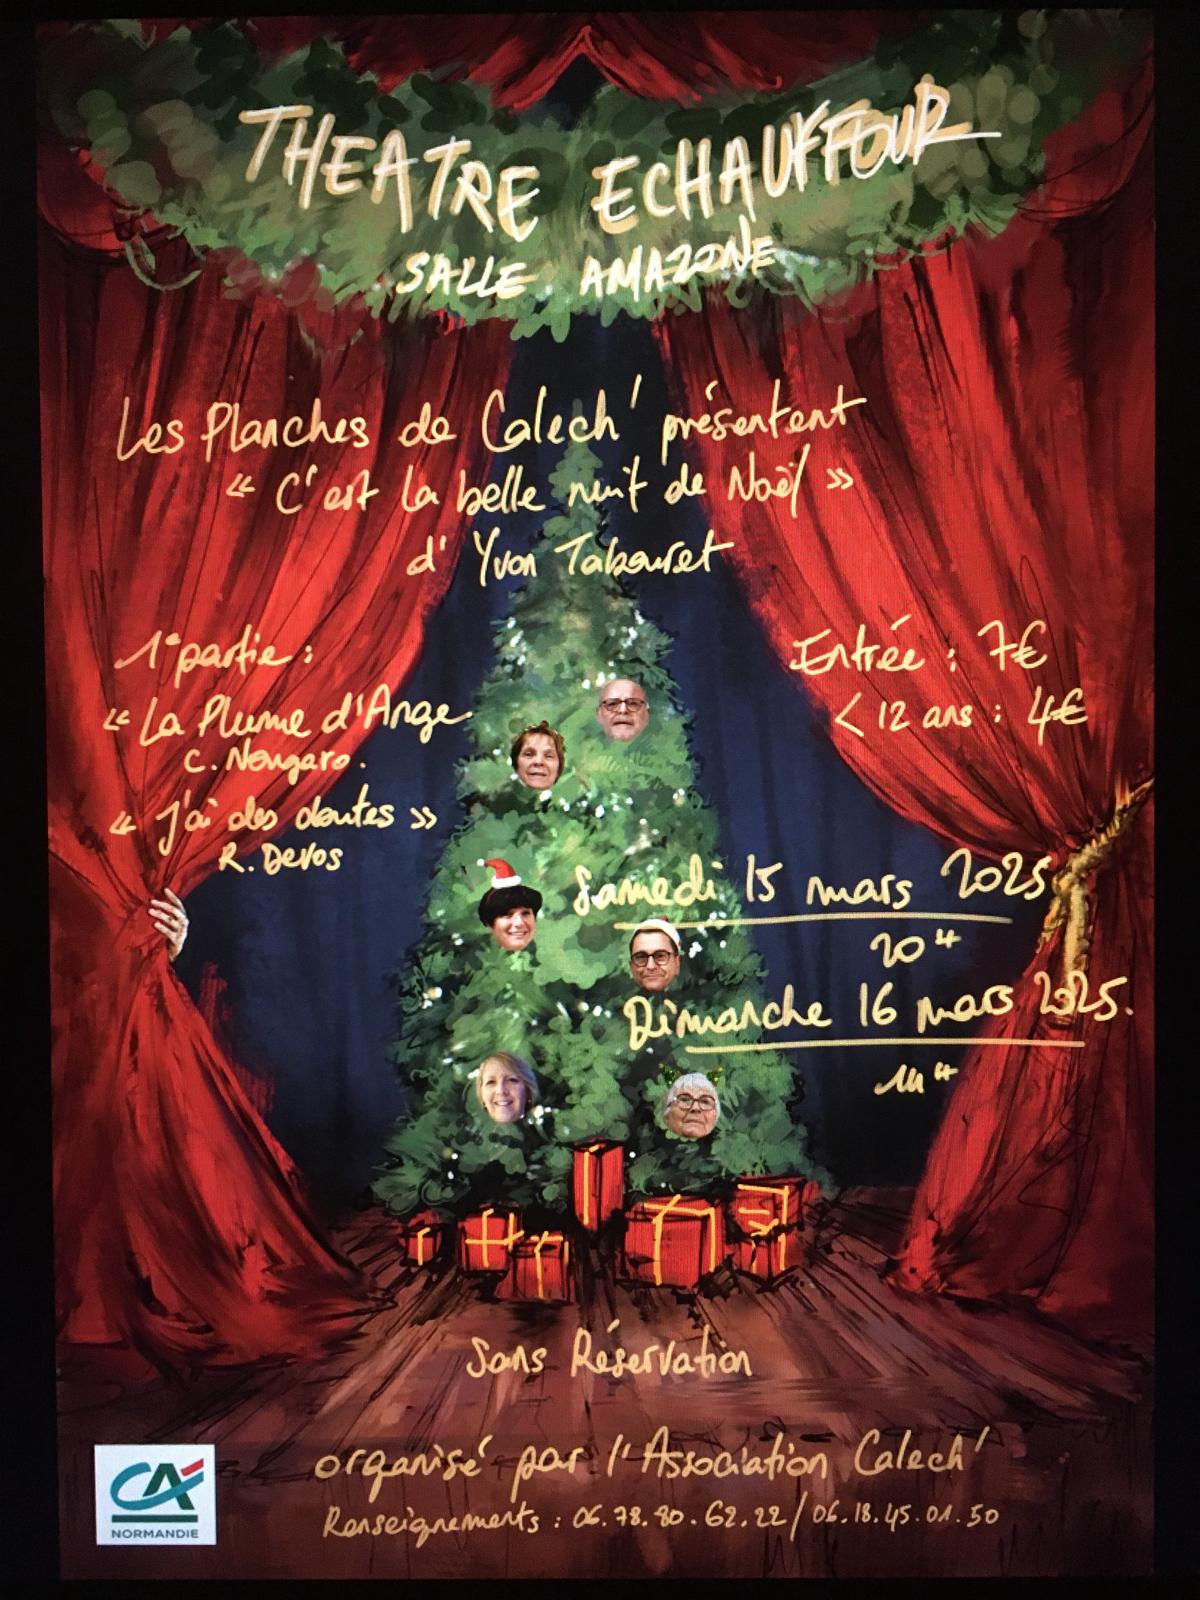 THEATRE ECHAUFFOUR
SALLE AMAZONE
Les Planches de Calech' présentent
« C'est la belle nuit de Noël »
d'Yvon Taburet
1e partie :
« La Plume d'Ange
C. Nougaro.
« J'ai des doutes »
R. Devos
Entrée : 7€
< 12 ans : 4€
Samedi 15 mars 2025
20H
Dimanche 16 mars 2025.
14H
Sans Réservation
organisé par l'Association Calech'
Renseignements : 06.78.80.62.22 / 06.18.45.01.50
CA
NORMANDIE